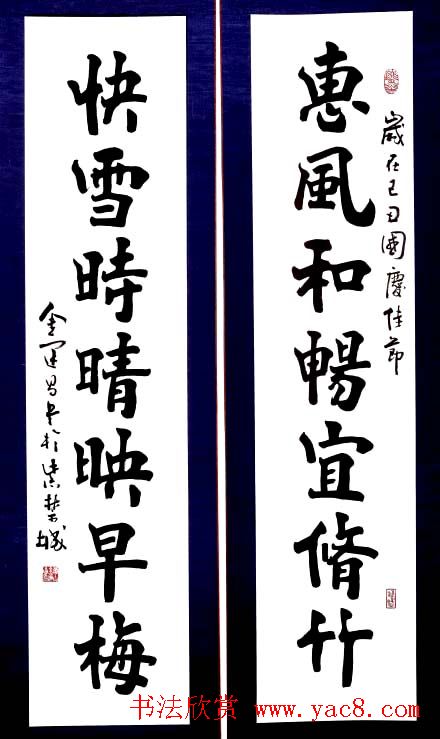 惠風和暢宜脩竹
歲在己丑國慶佳節
快雪時晴映早梅
金運昌書於紫禁城
书法欣赏 www.yac8.com